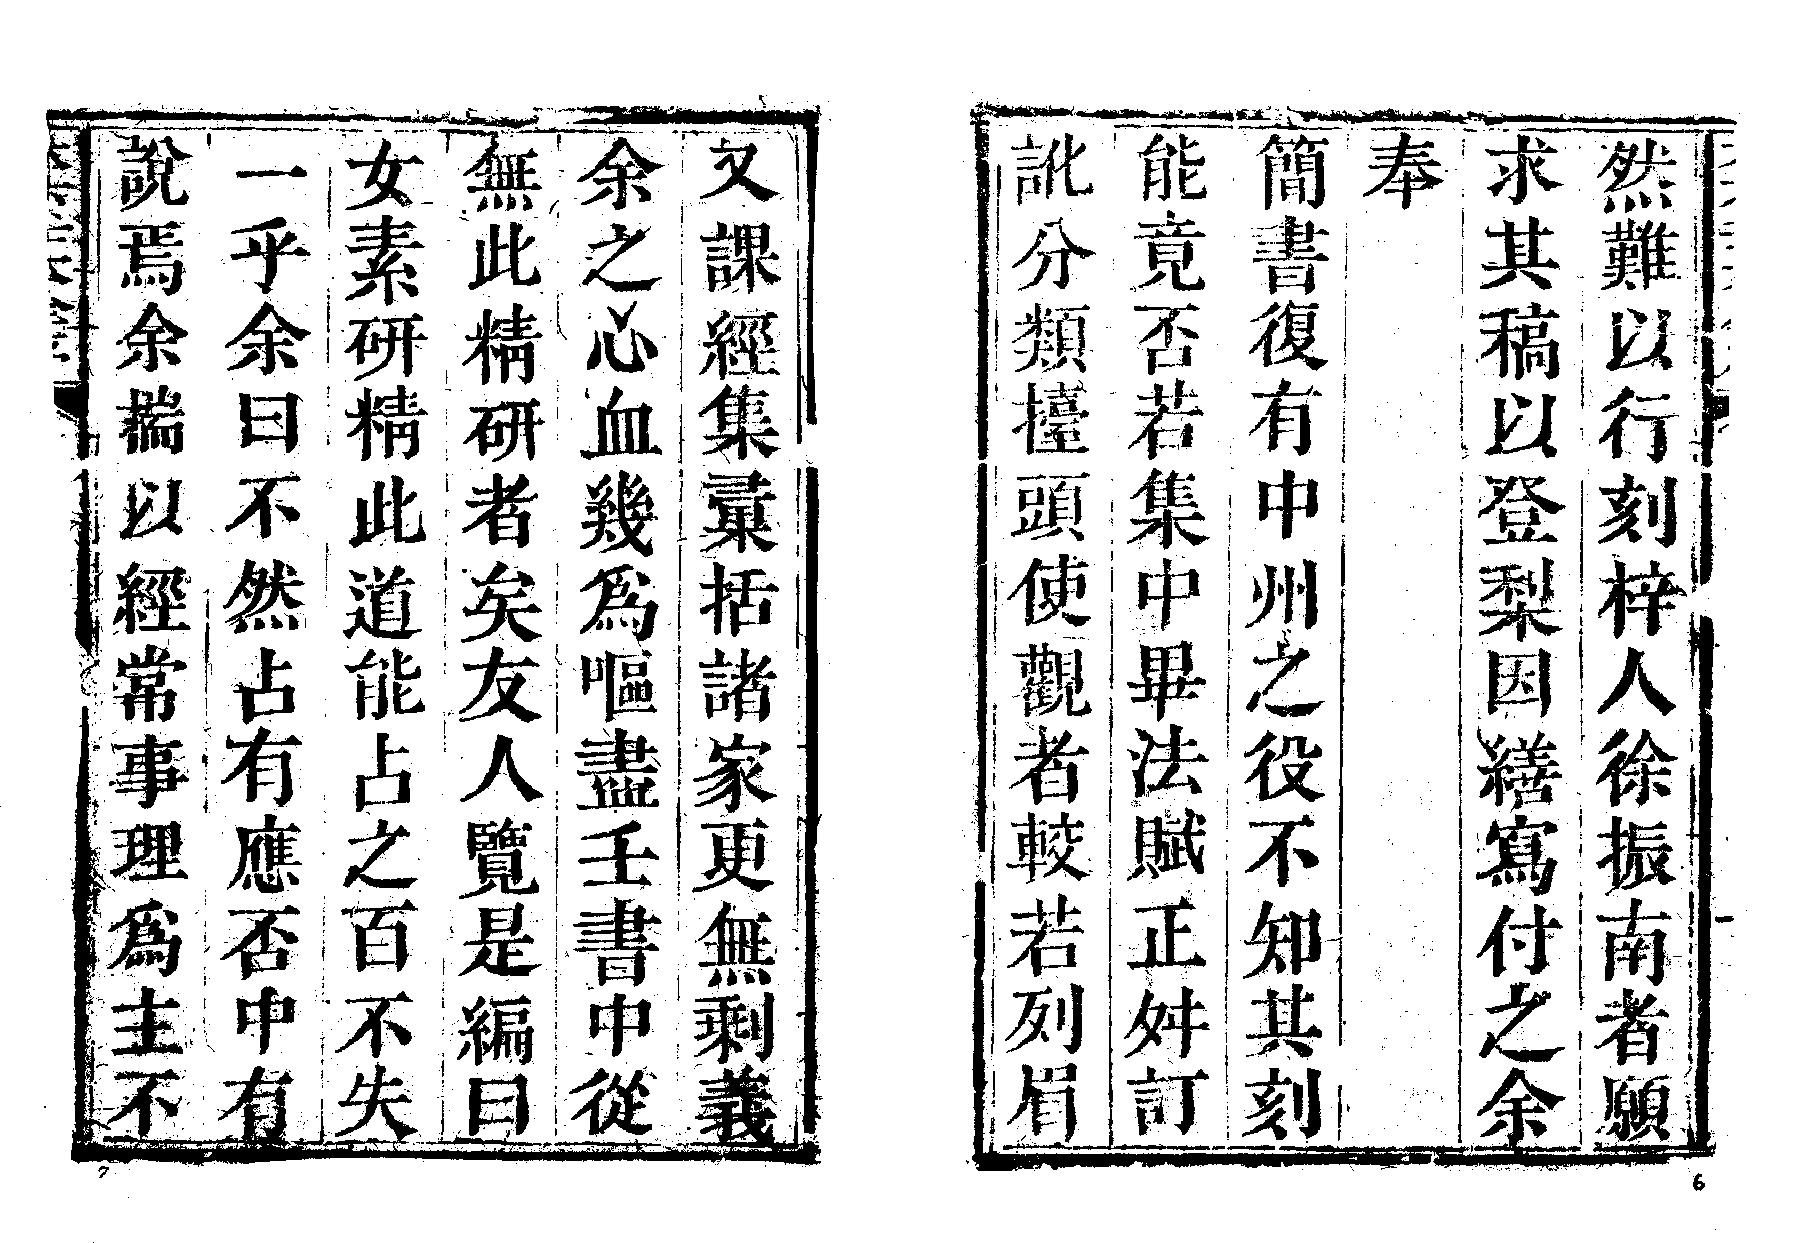 然難以行刻梓人徐振南者願
求其稿以登梨因繕寫付之余
奉
簡書復有中州之役不知其刻
能竟否若集中畢法賦正舛訂
訛分類擡頭使觀者較若列眉
6
又課經集彙括諸家更無剩義
余之心血幾爲嘔盡壬書中從
無此精研者矣友人覽是編曰
女素研精此道能占之百不失
一乎余曰不然占有應否中有
說焉余揣以經常事理爲主不
7